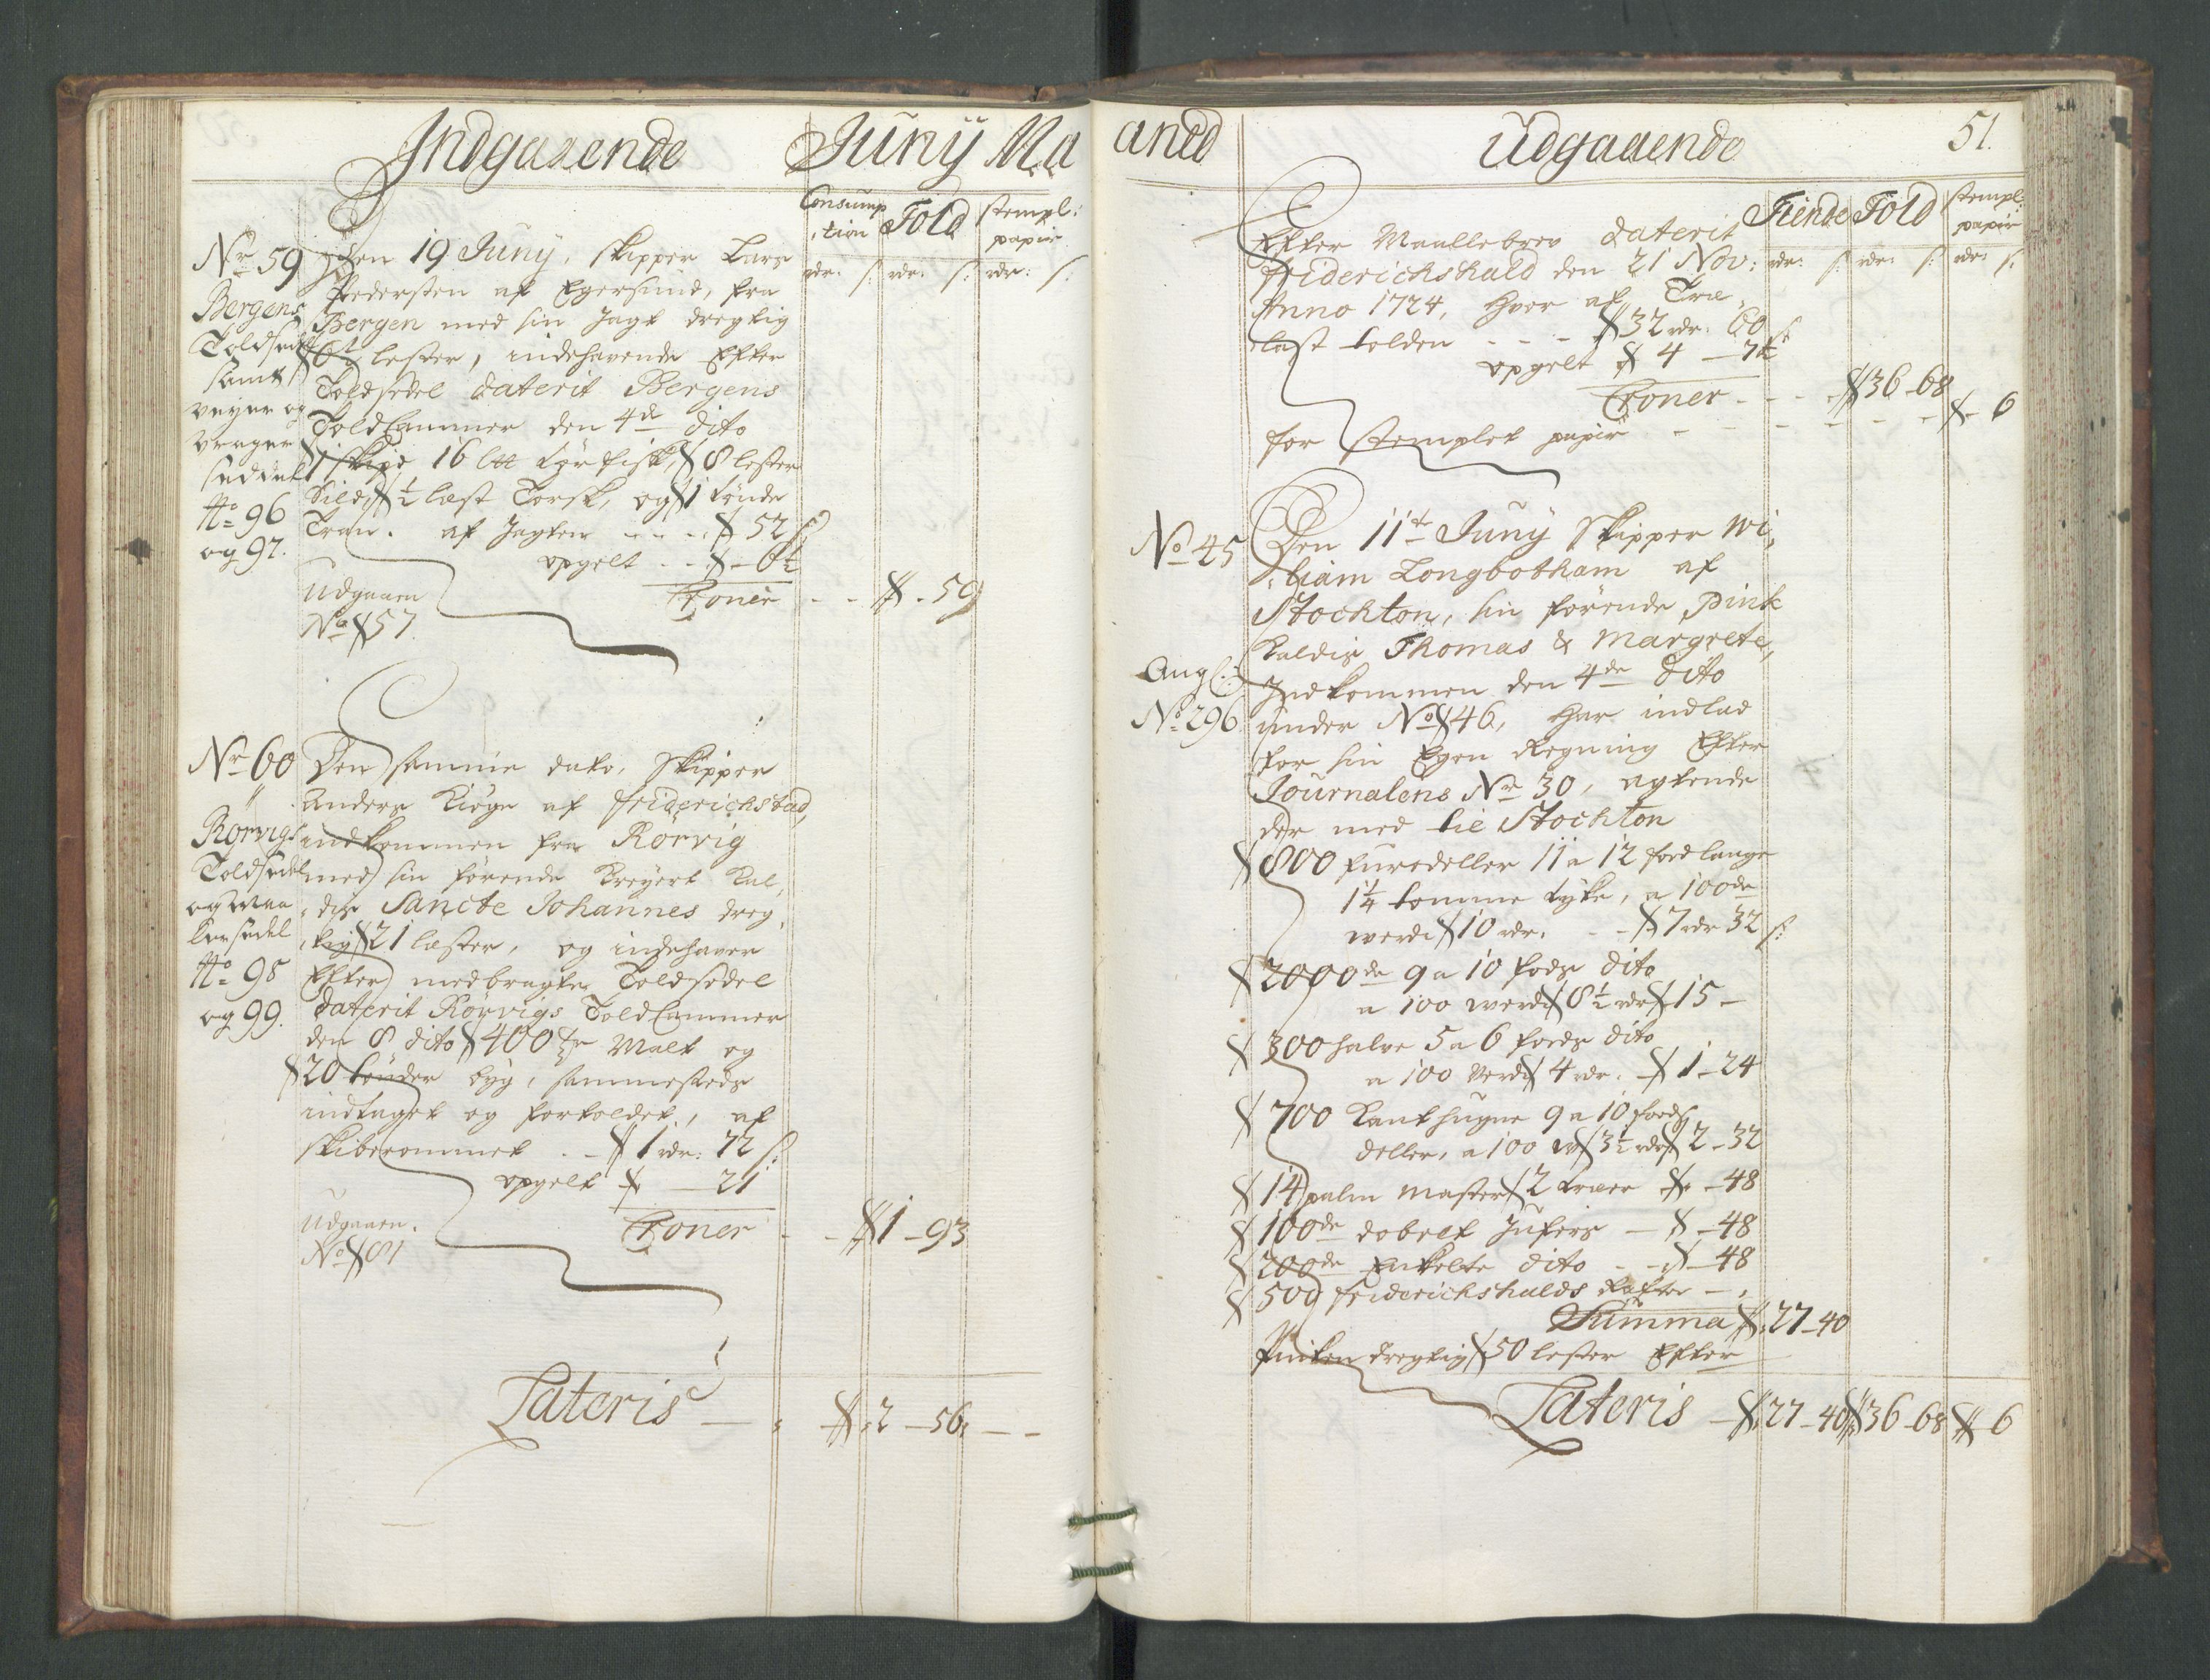 Indgaaende Juny Ma
Consump
,,tion Told Stempl:
papir
rdr: s: rdr: s: rdr: s:
Nr 59
Bergens
Toldsedel
samt
veyer og
vrager
seddel
No 96
og 97.
Den 19 Juny, skipper Lars
Pedersen af Egersund, fra
Bergen med sin Jagt dregtig
6½ lester, indehavende Efter
Toldsedel daterit Bergens
ToldCammer den 4de dito
1 skipd 16 Ltt tør fisk, 8 lester
Sild, ½ lest Torsk, og 1 tønde
Tran. af Jagten - - - 52 s:
opgelt - - 6½
Croner - - 59
Udgaaen
No 57.
Nr 60
Rørvigs
Toldsedel
og maa
lersedel
No 98
og 99.
Den samme dato, Skipper
Anders Kiøge af Friderichstad,
indkommen fra Rørvig
med sin førende Kreyert Kal,
,,dis Sancte Johannes dreg,
,,tig 21 lester, og indehaver
Efter medbragte Toldsedel
daterit Rørvigs ToldCammer
den 8 dito 400 tr Malt og
20 tønder byg, sammesteds
indtaget og fortoldet, af
skibrommet - - 1 rdr: 72 s:
opgelt - 21
Croner - - 1 - 93
Udgaaen.
No 81
Lateris - 2 - 56 - -
aned Udgaaende 51.
Tiende Told Stempl:
papir
rdr: s: rdr: s: rdr: s:
Efter Maallebrev daterit
Friderichshald den 21 Nov:
Anno 1724, hvor af Træ,
last tolden - - - 32 rdr: 60 s:
opgelt 4 - 7½
Croner - - - 36 - 68
for Stemplet papir - - - - - - 6
No 45
Angl:
No 296
Den 11te Juny Skipper Wi,
,,liam Longbotham af
Stochton, sin førende Pink
Kaldis Thomas & Margrete,
Indkommen den 4de dito
under No 46, har indlad
for sin Egen Regning Efter
Journalens Nr 30, agtende
der med til Stochton
800 furedeller 11 a 12 foed lange
1¼ tomme tyke, a 100de
verdi 10 rdr. - - 7 rdr 32 s:
2000de 9 a 10 fods dito
a 100 werdi 8½ rdr 15 -
300 halve 5 a 6 foeds dito
a 100 Verdi 4 rdr. - 1 - 24
700 Kanthugne 9 a 10 foeds
deller, a 100 w 3½ rdr 2 - 32
14 palm master 2 træer - 48
100de dobelt Jufers - - 48
200de Enkelte dito - - - 48
500 Friderichshalds Rafter - ,
Summa 27 - 40
Pinken dregtig 50 lester Efter
Lateris - 27 - 40 36 - 68 6